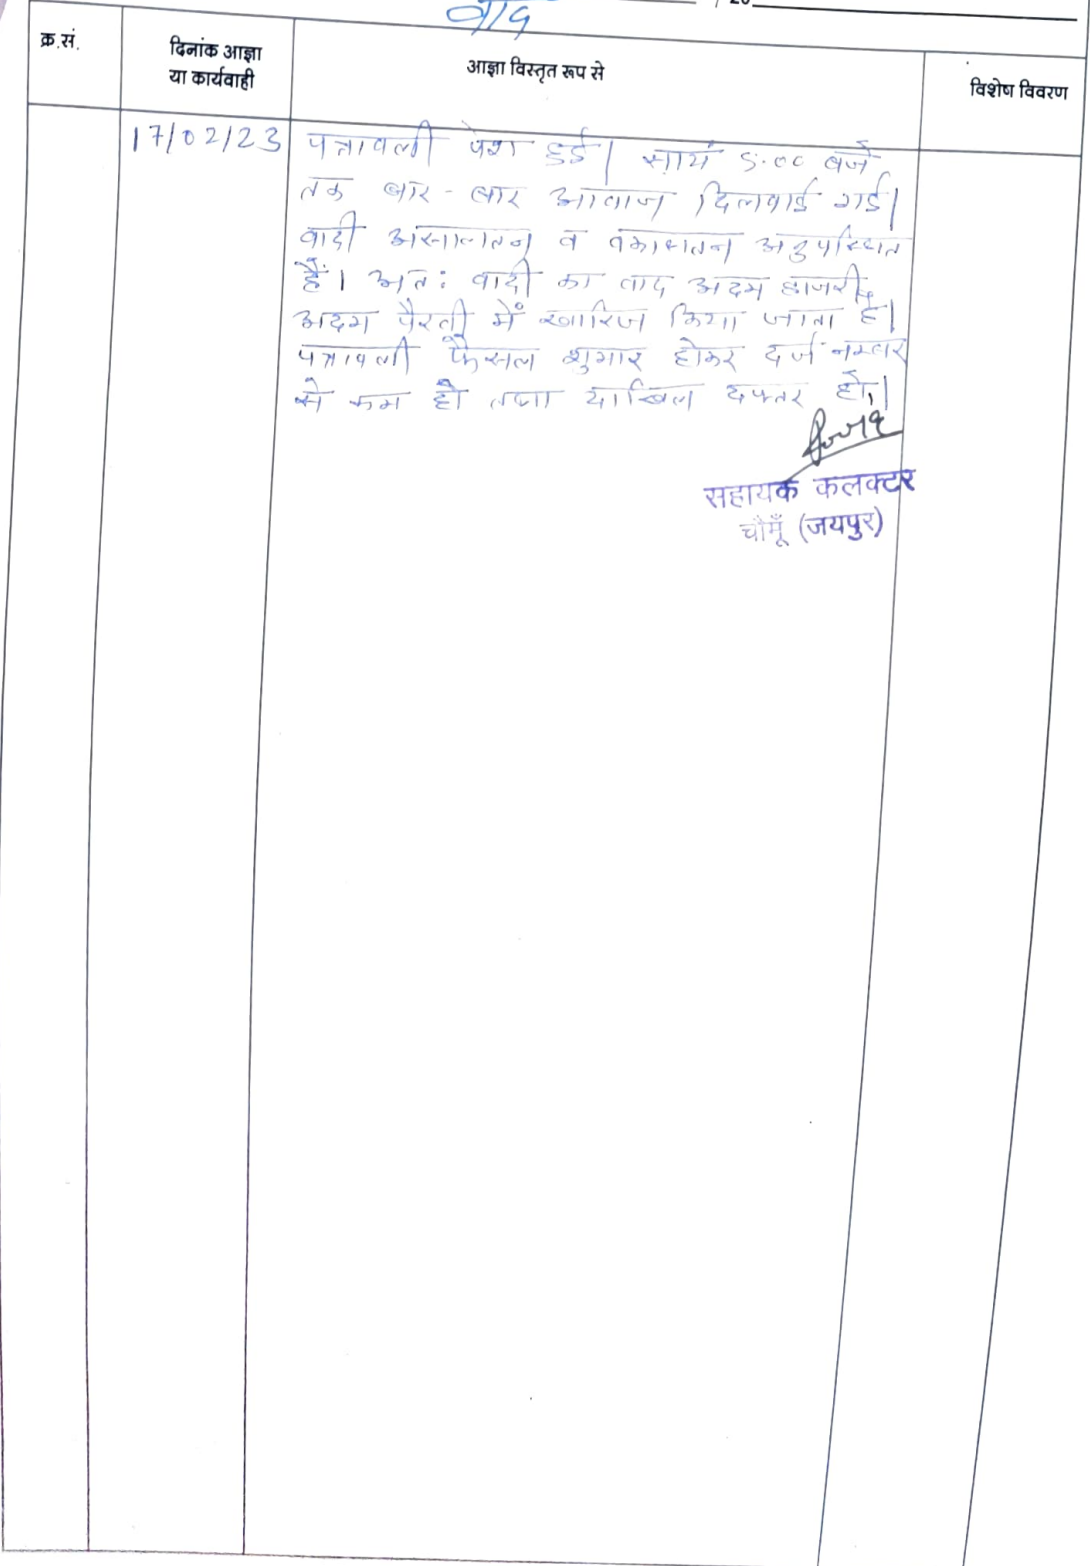 वाद / 20
क्र.सं. दिनांक आज्ञा या कार्यवाही आज्ञा विस्तृत रूप से विशेष विवरण
17/02/23 पत्रावली पेश हुई। सायं 5.00 बजे
तक बार-बार आवाज दिलवाई गई।
वादी असालतन व वकालतन अनुपस्थित
हैं। अतः वादी का वाद अदम हाजरी
अदम पैरवी में खारिज किया जाता है।
पत्रावली फैसल शुमार होकर दर्ज नम्बर
से कम हो तथा दाखिल दफ्तर हो।
सहायक कलक्टर
चौमूँ (जयपुर)